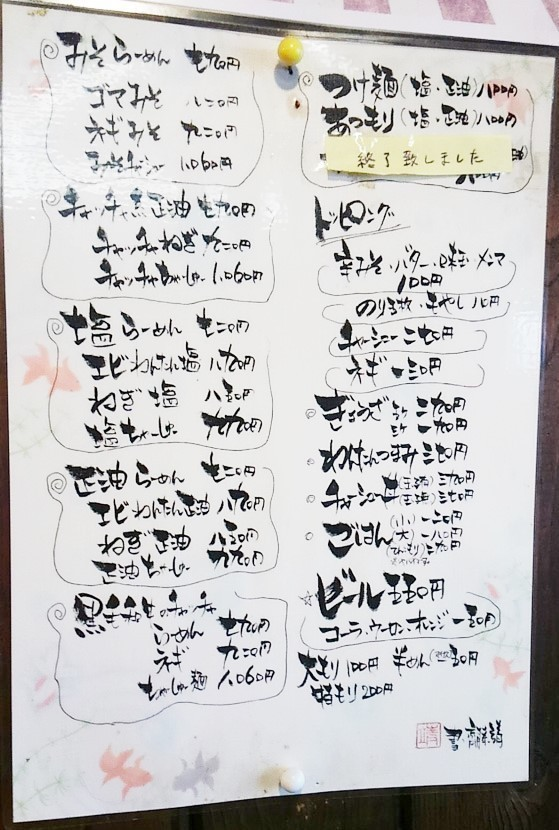 みそらーめん 七九〇円
ゴマみそ 八二〇円
ネギみそ 九二〇円
みそチャーシュー 1,060円
チャッチャ黒正油 七九〇円
チャッチャねぎ 九二〇円
チャッチャちゃーしゅー 1,060円
塩らーめん 七二〇円
エビわんたん塩 八九〇円
ねぎ塩 八五〇円
塩ちゃーしゅー 九九〇円
正油らーめん 七二〇円
エビわんたん正油 八九〇円
ねぎ正油 八五〇円
正油ちゃーしゅー 九九〇円
黒チャッチャ
らーめん 七九〇円
ネギ 九二〇円
ちゃーしゅー麺 1,060円
つけ麺(塩・正油)八〇〇円
あつもり(塩・正油)八〇〇円
終了致しました
トッピング
辛みそ・バター・味玉・メンマ
100円
のり・もやし
チャーシュー 二九〇円
ネギ 一三〇円
ぎょうざ 三九〇円
二九〇円
わんたんつまみ
チャーシュー丼
ごはん(小)一三〇円
(大)一八〇円
ビール 五五〇円
コーラ・ウーロン・オレンジ 一五〇円
大もり 100円 半めん 一五〇円
特もり 200円